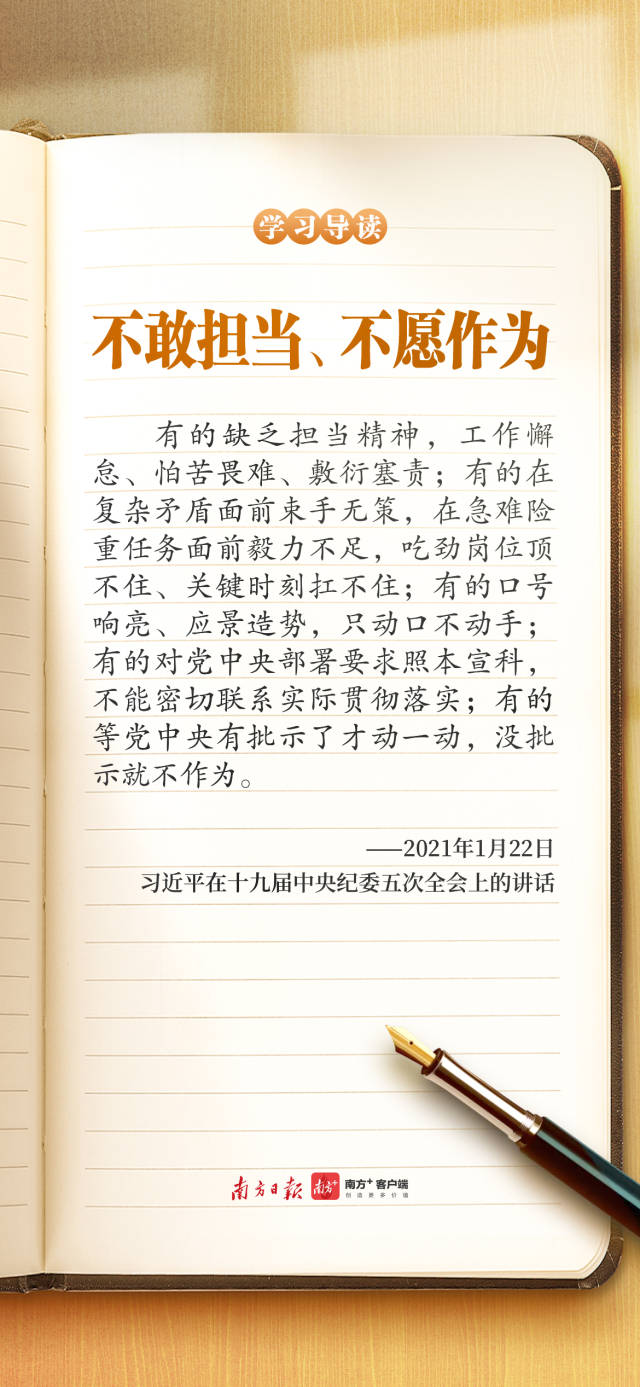 学习导读
不敢担当、不愿作为
有的缺乏担当精神，工作懈
怠、怕苦畏难、敷衍塞责；有的在
复杂矛盾面前束手无策，在急难险
重任务面前毅力不足，吃劲岗位顶
不住、关键时刻扛不住；有的口号
响亮、应景造势，只动口不动手；
有的对党中央部署要求照本宣科，
不能密切联系实际贯彻落实；有的
等党中央有批示了才动一动，没批
示就不作为。
——2021年1月22日
习近平在十九届中央纪委五次全会上的讲话
南方日报 南方+ 南方+ 客户端
创造更多价值